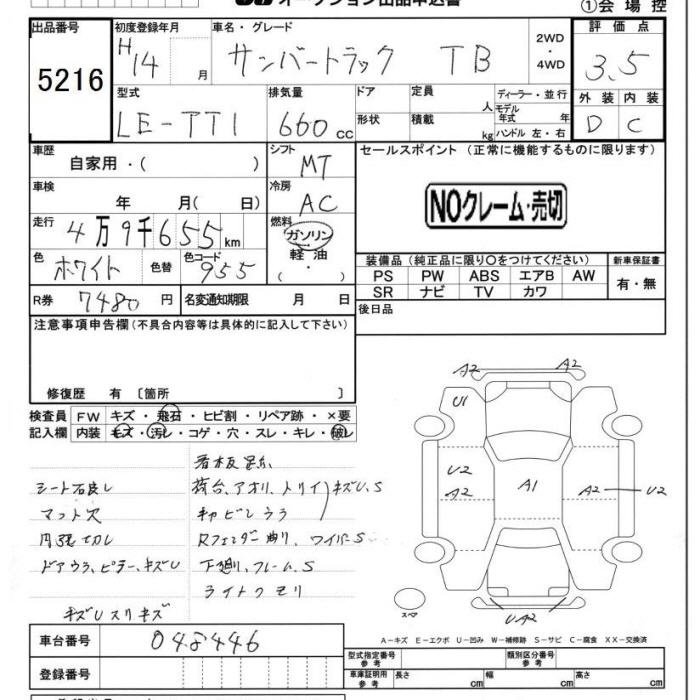 オークション出品申込書
①会場控
出品番号 初度登録年月 車名・グレード 評価点
5216 H14 月 サンバートラック TB 2WD・4WD 3.5
型式 排気量 ドア 定員 人 ディーラー・並行 外装 内装
LE-TT1 660cc 形状 積載 kg モデル年式 年 ハンドル 左・右 D C
車歴 自家用・( ) シフト MT セールスポイント(正常に機能するものに限ります)
車検 年 月( 日) 冷房 AC
NOクレーム・売切
走行 4万9千655km 燃料 ガソリン・軽油・
色 ホワイト 色替 色コード 955
装備品(純正品に限り○をつけてください) 新車保証書
PS PW ABS エアB AW 有・無
SR ナビ TV カワ
R券 7480円 名変通知期限 月 日
後日品
注意事項申告欄(不具合内容等は具体的に記入して下さい)
修復歴 有 〔箇所 〕
検査員記入欄 FW キズ・飛石・ヒビ割・リペア跡・×要
内装 キズ・汚レ・コゲ・穴・スレ・キレ・破レ
マット穴
荷台、アオリ、トリイ キズU、S
キャビンウラ
Rフェンダー曲リ、ワイパーS
下廻リ、フレームS
ライトクモリ
キズUスリキズ
A2 A2
U1
U2
A2 A1 A2 U2
スペア
UA2
A-キズ E-エクボ U-凹み W-補修跡 S-サビ C-腐食 XX-交換済
車台番号 048446
登録番号
型式指定番号 参考 類別区分番号 参考
車庫証明用 参考 長さ cm 幅 cm 高さ cm